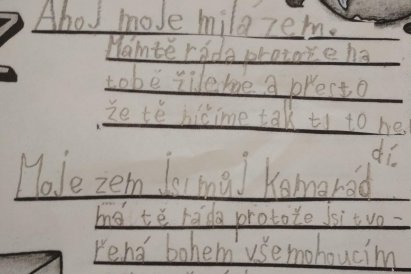 Ahoj moje milá zem.
Mámtě ráda protože na
tobě žijeme a přesto
že tě ničíme tak ti to ne
dí.
Moje zem jsi můj kamarád
má tě ráda protože jsi tvo-
řená bohem všemohoucím